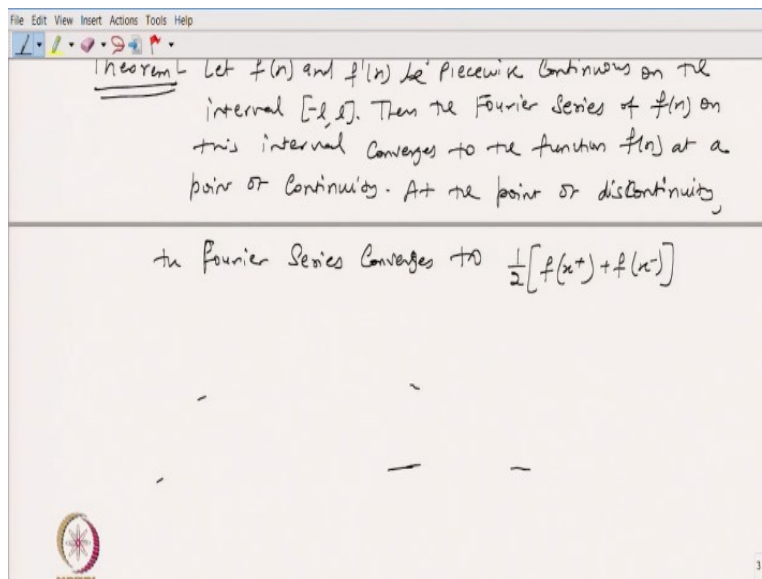 File Edit View Insert Actions Tools Help
Theorem - Let f(x) and f'(x) be Piecewise Continuous on the
interval [-l, l]. Then the Fourier Series of f(x) on
this interval Converges to the function f(x) at a
point of Continuity. At the point of discontinuity,
the Fourier Series Converges to 1/2 [f(x+) + f(x-)]
3